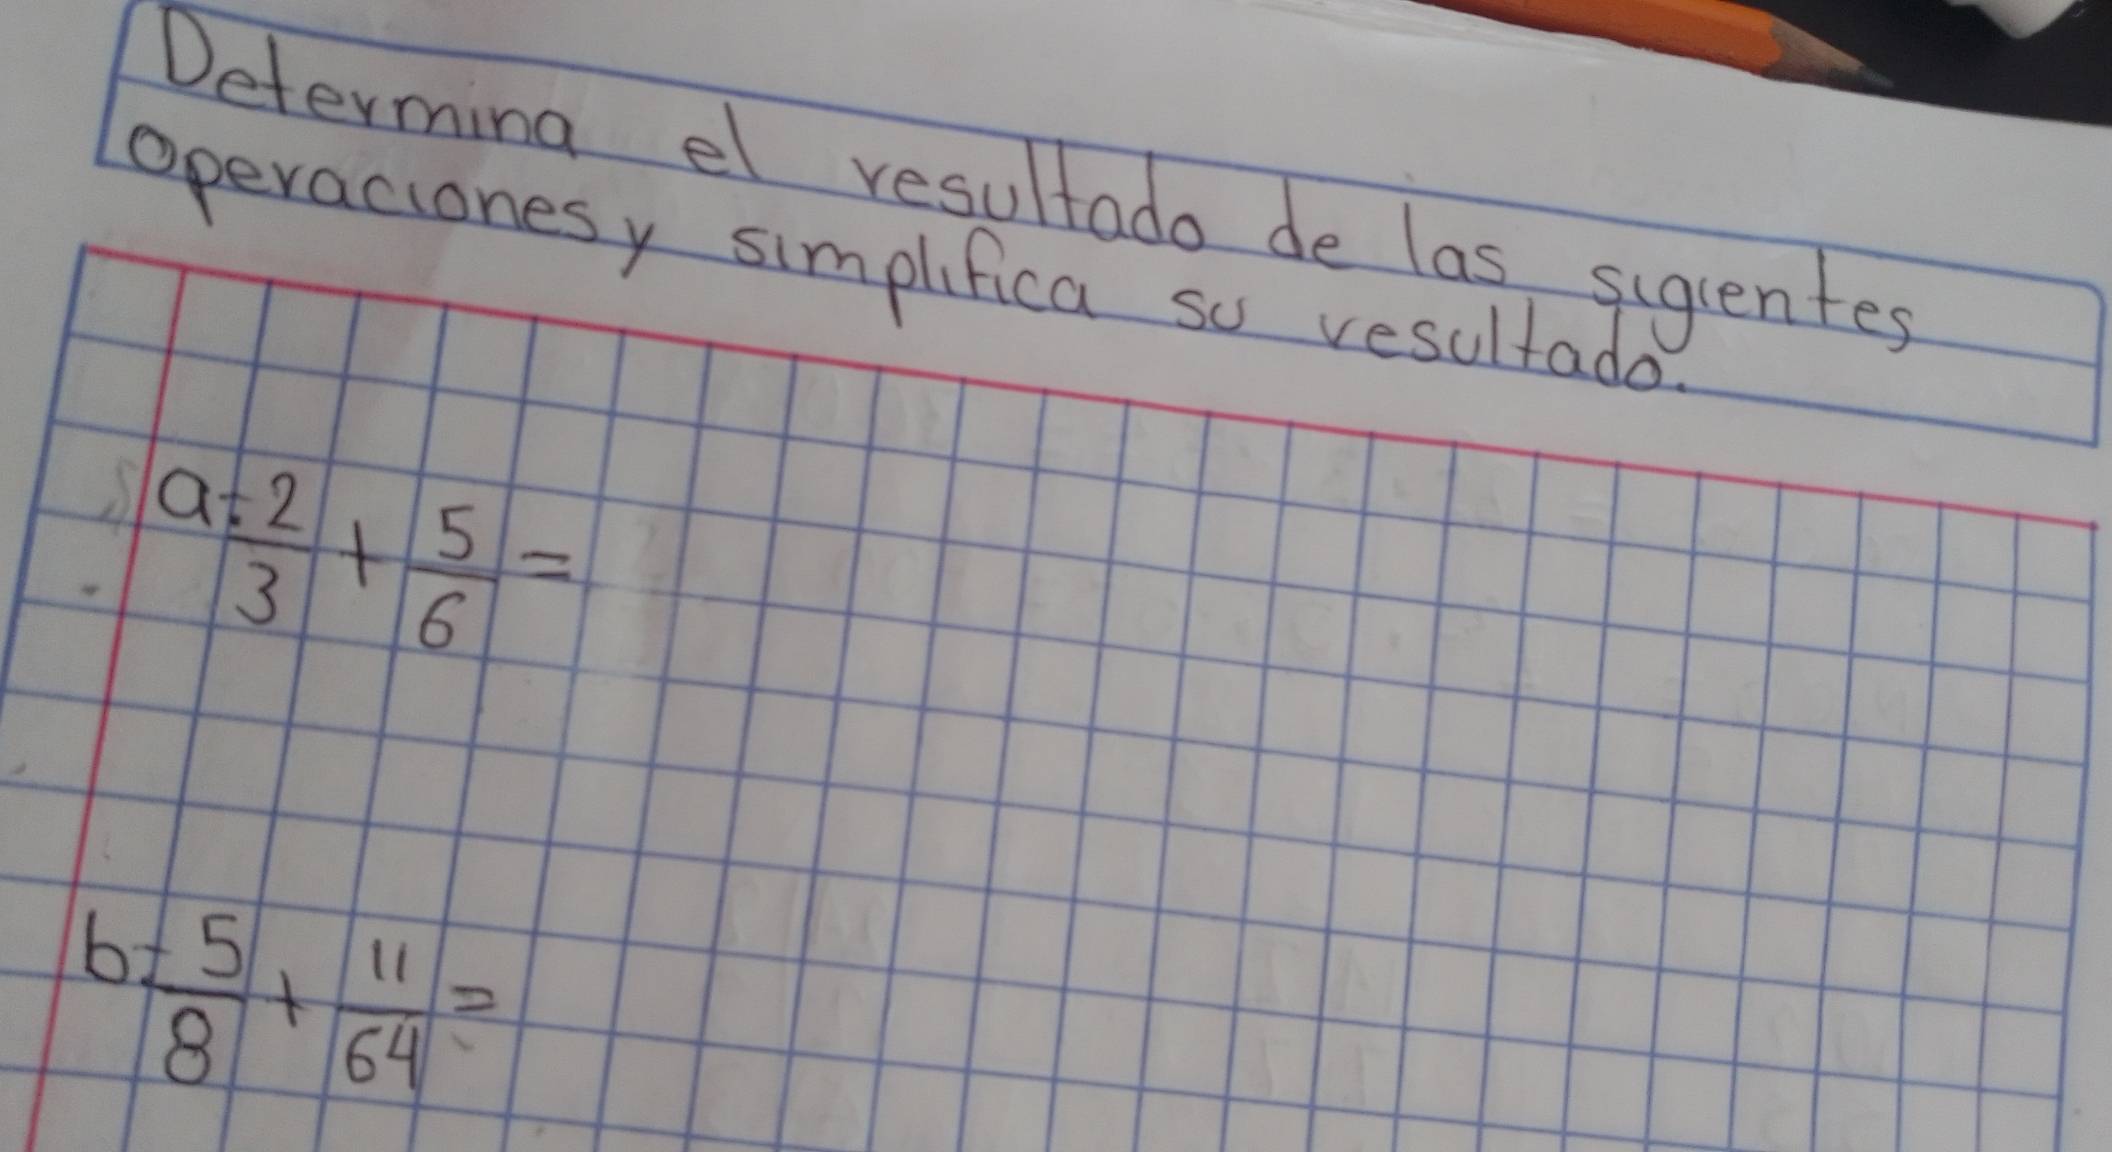 Determina el resultado de las sigientes
operaciones y simplifica su resultado.
a: 2/3 + 5/6 =
b: 5/8 + 11/64 =